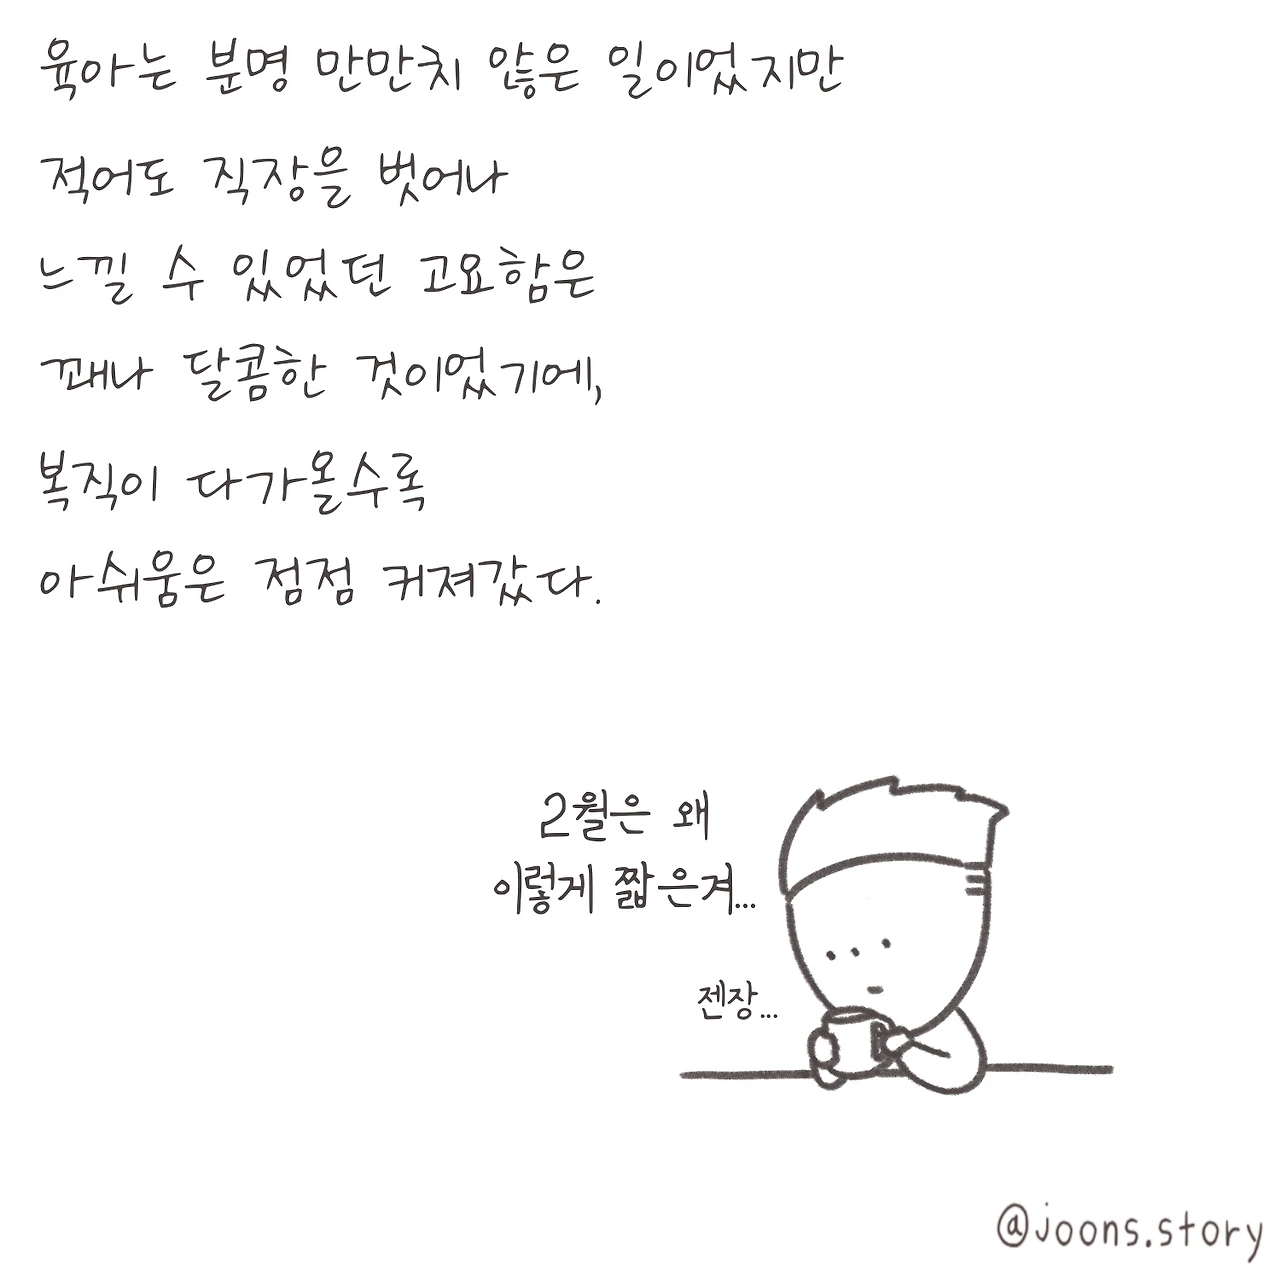 육아는 분명 만만치 않은 일이었지만
적어도 직장을 벗어나
느낄 수 있었던 고요함은
꽤나 달콤한 것이었기에,
복직이 다가올수록
아쉬움은 점점 커져갔다.
2월은 왜
이렇게 짧은겨...
젠장...
@joons.story